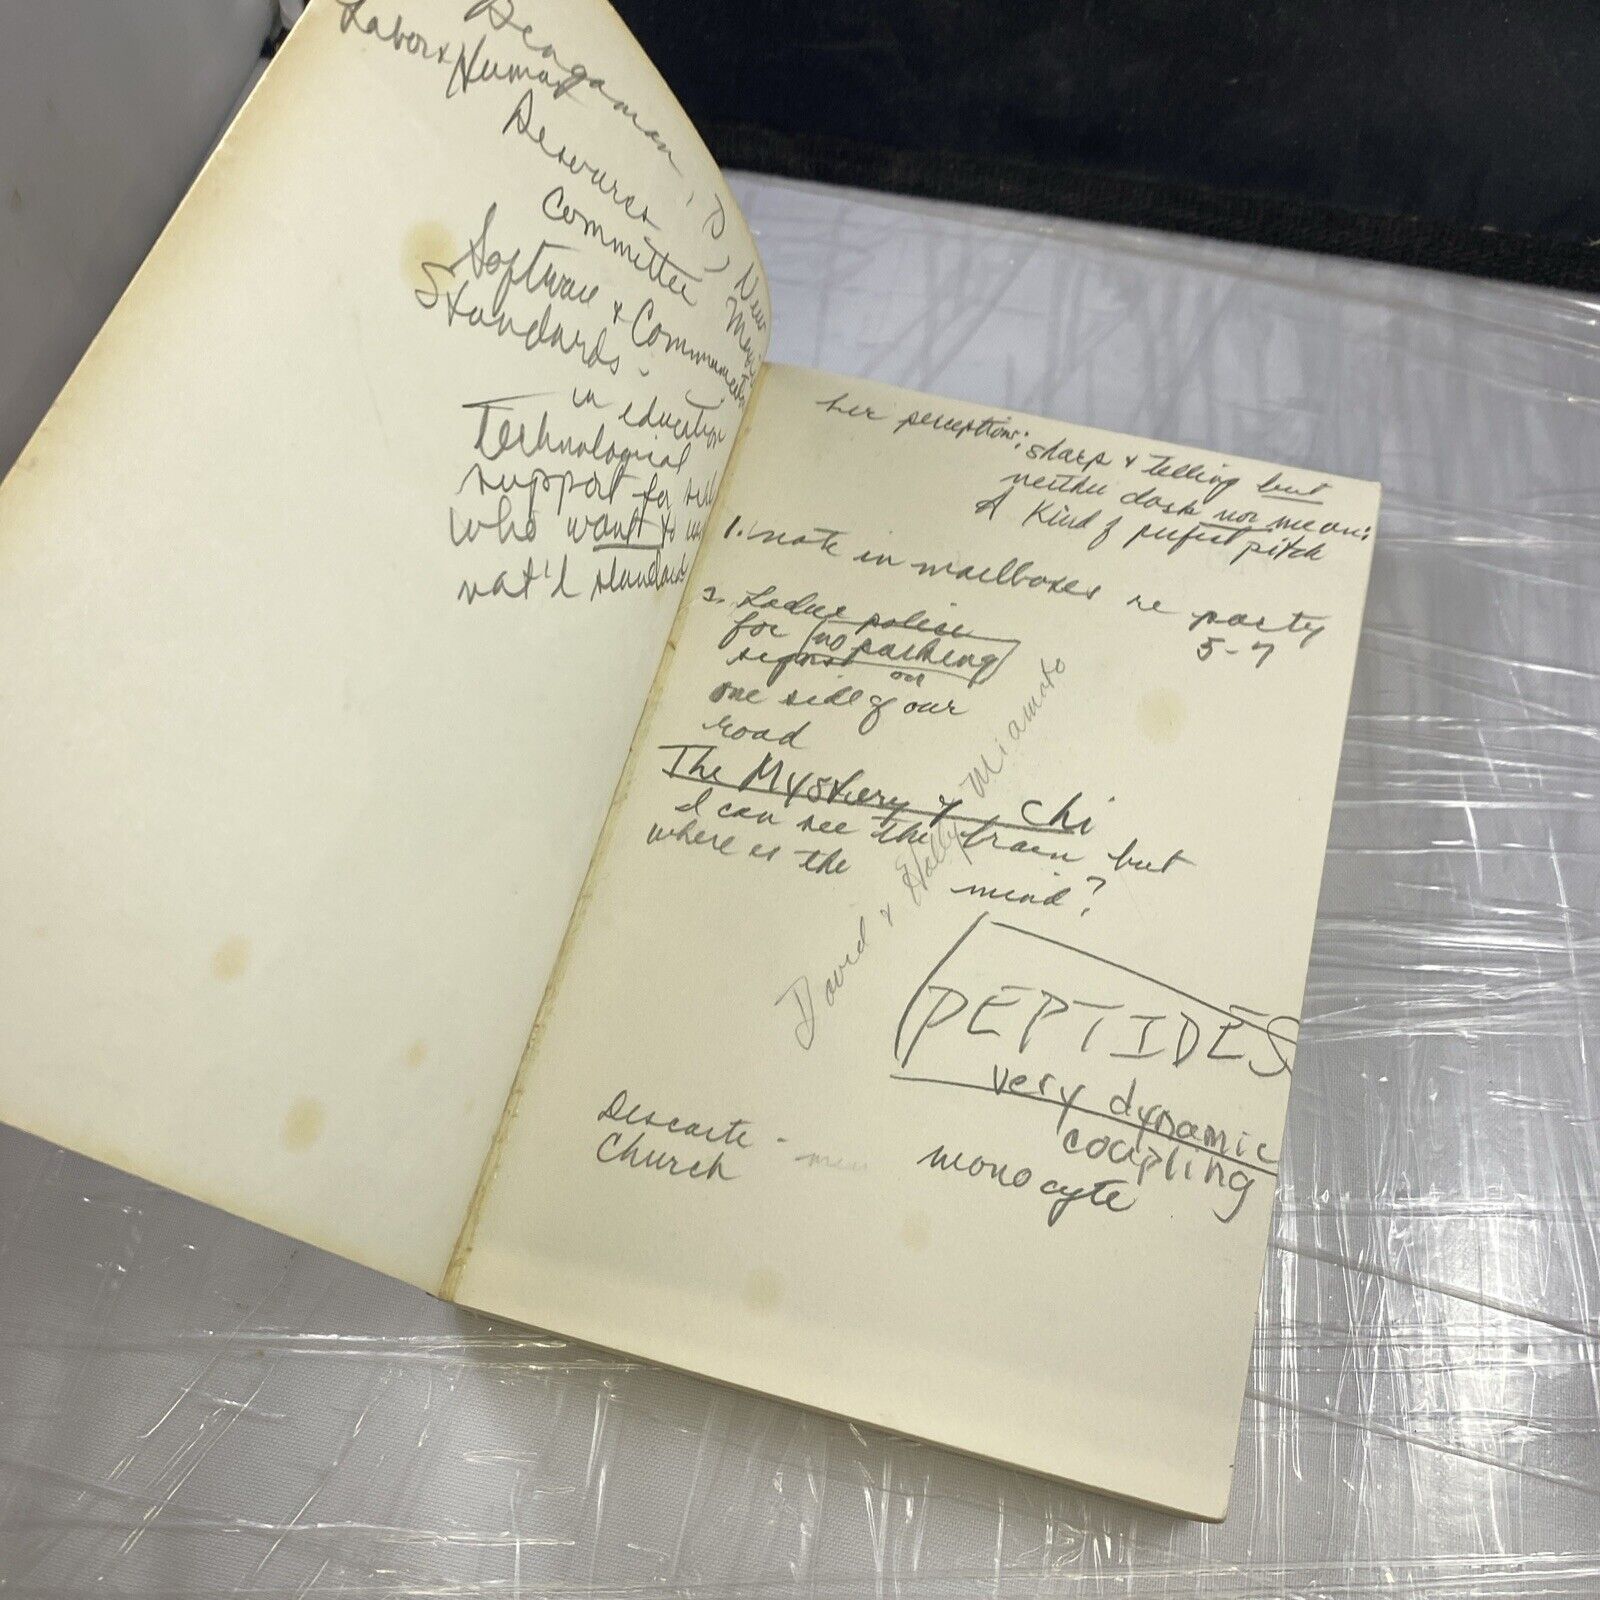 Bengaman, D, New Mexic
Labor & Human
Resources
Committee
Software & Communication
Standards -
in education
Technological
support for
who want to
nat'l standards
her perceptions: sharp & telling but
neither dark nor mean:
A kind of perfect pitch
1. note in mailboxes re party
5-7
2. Ladue police
for no parking
signs on
one side of our
road
The Mystery of Chi
I can see the brain but
where is the mind?
David & Holly Miamoto
PEPTIDES
very dynamic
coupling
Descarte - men
Church
monocyte